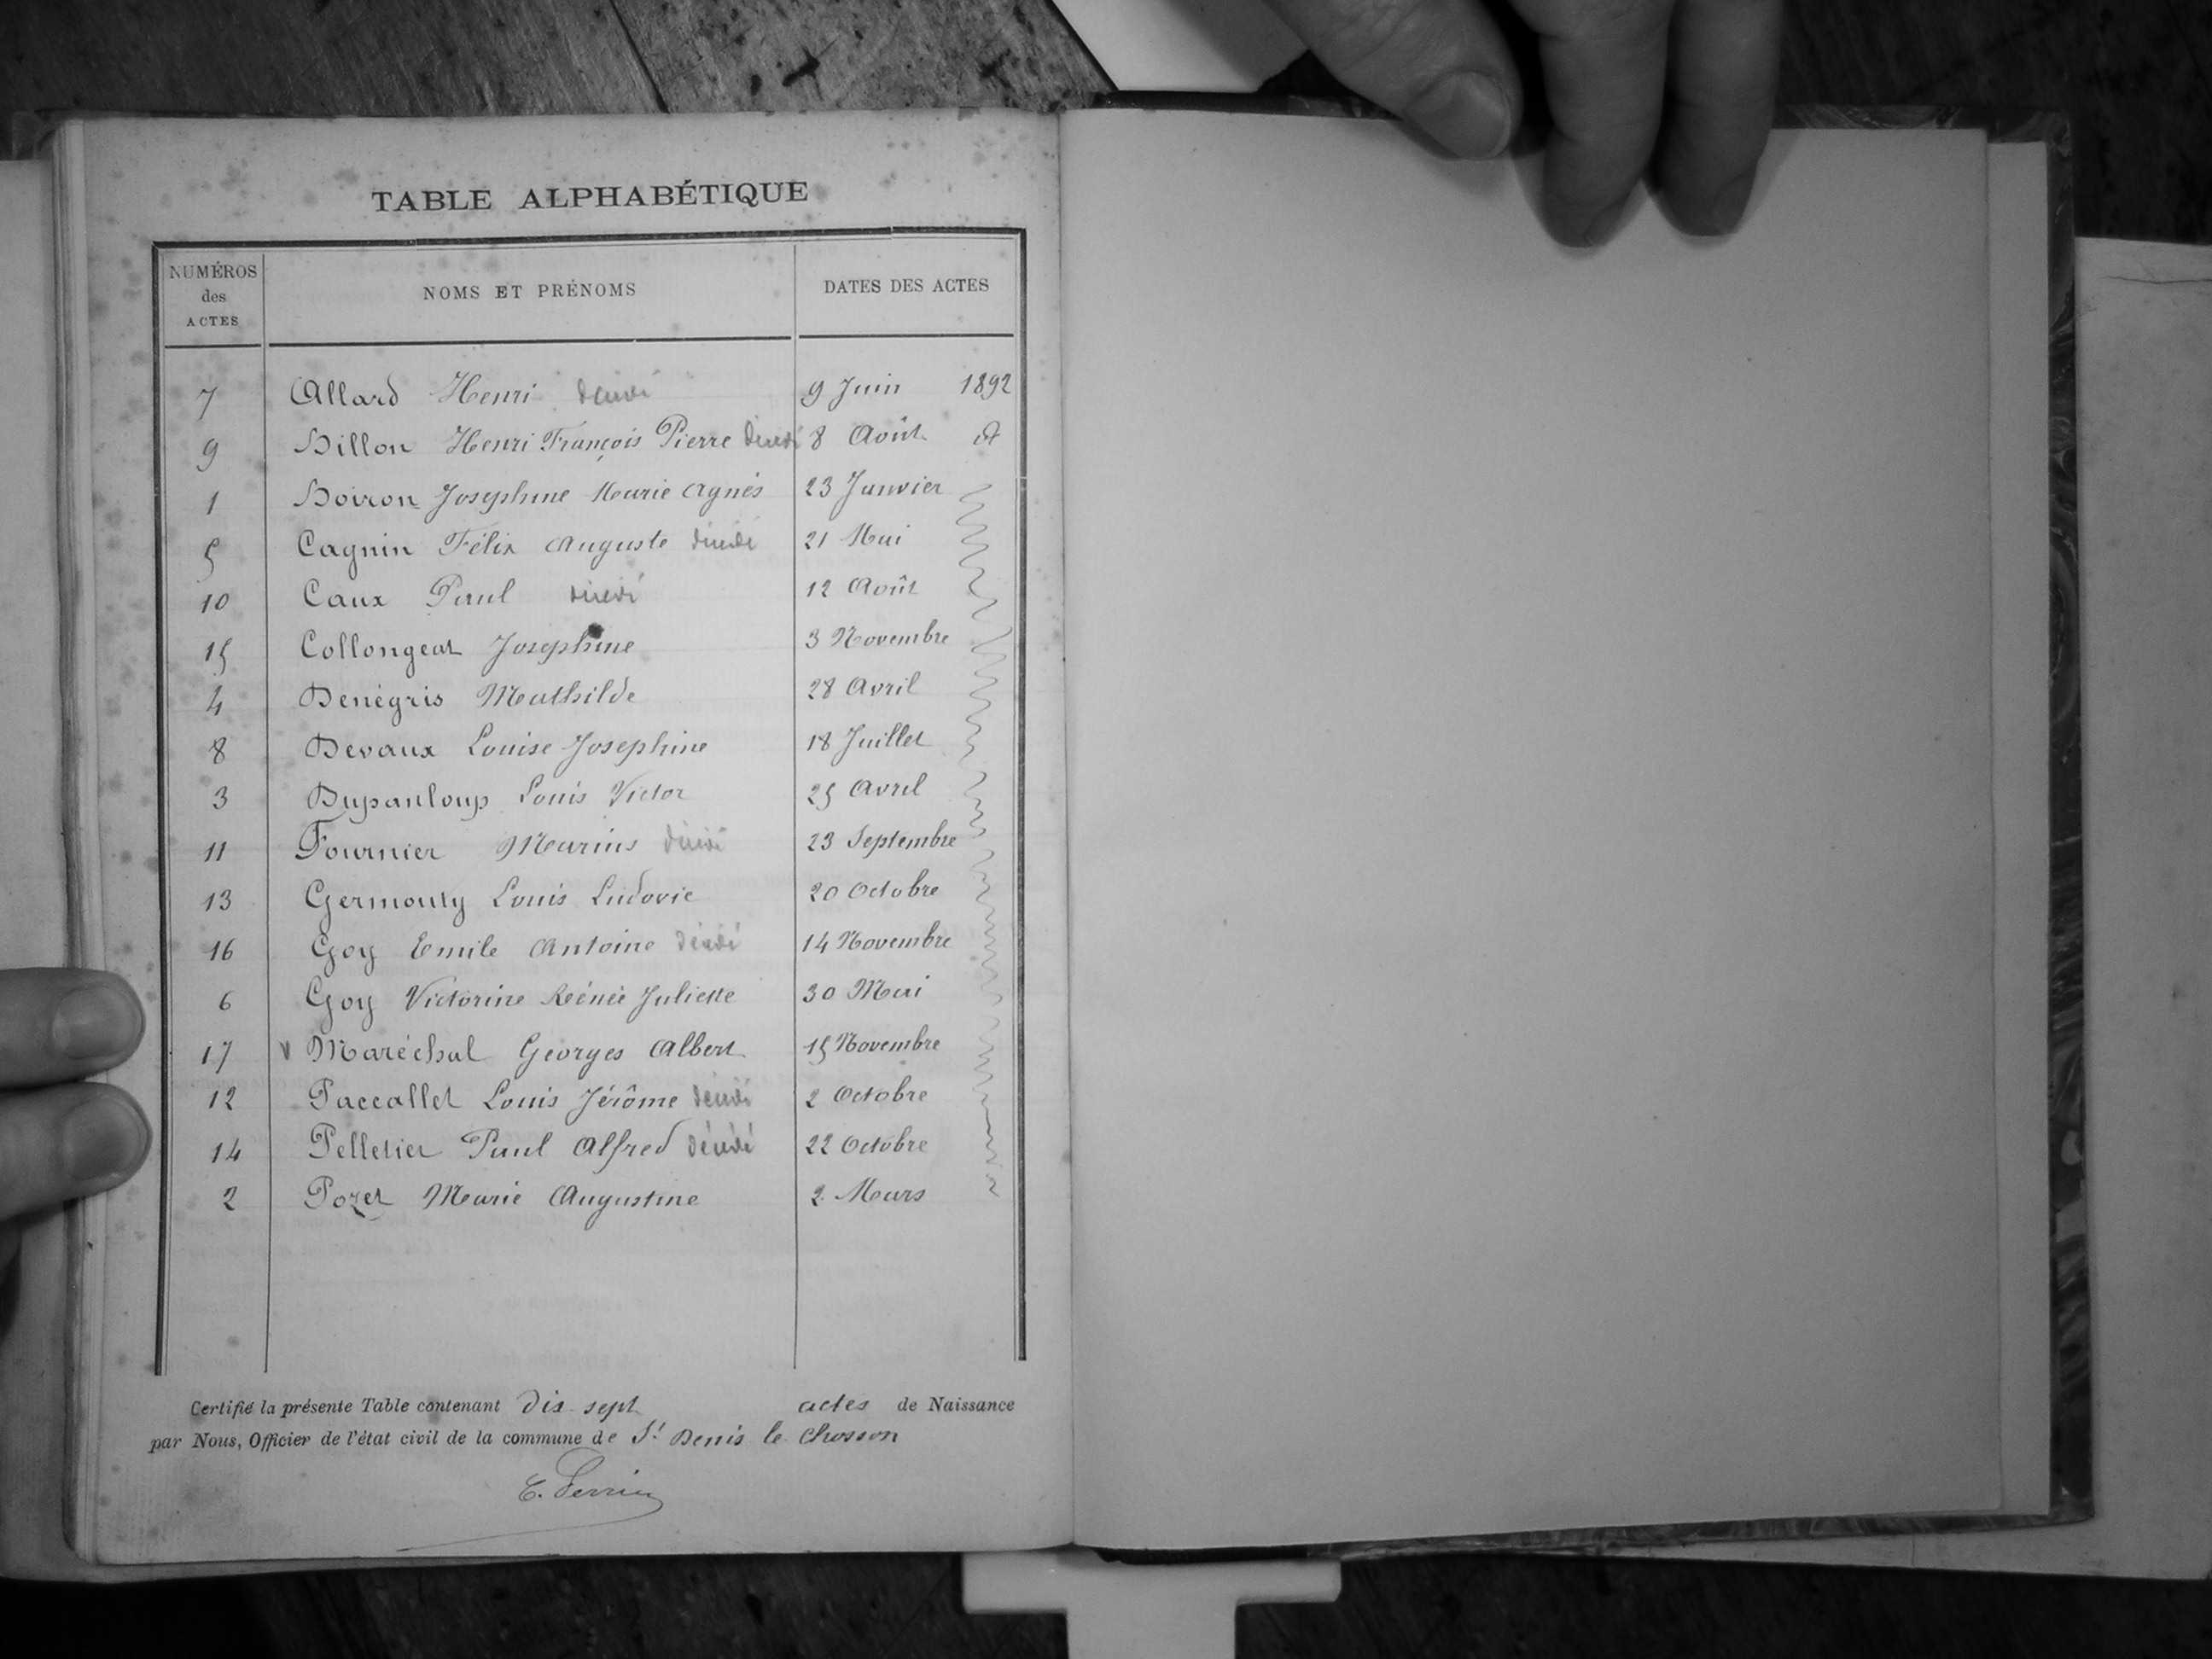 TABLE ALPHABÉTIQUE
NUMÉROS des ACTES NOMS ET PRÉNOMS DATES DES ACTES
7 Allard Henri décédé 9 Juin 1892
9 Billon Henri François Pierre décédé 8 Août d°
1 Boiron Josephine Marie Agnès 23 Janvier
5 Cagnin Félix Auguste décédé 21 Mai
10 Caux Paul décédé 12 Août
15 Collongeat Josephine 3 Novembre
4 Denégris Mathilde 28 Avril
8 Devaux Louise Josephine 18 Juillet
3 Dupanloup Louis Victor 25 Avril
11 Fournier Marius décédé 23 Septembre
13 Germouty Louis Ludovic 20 Octobre
16 Goy Emile Antoine décédé 14 Novembre
6 Goy Victorine Rénée Juliette 30 Mai
17 v Maréchal Georges Albert 15 Novembre
12 Paccallet Louis Jérôme décédé 2 Octobre
14 Pelletier Paul Alfred décédé 22 Octobre
2 Pozet Marie Augustine 2 Mars
Certifié la présente Table contenant dix sept actes de Naissance
par Nous, Officier de l'état civil de la commune de St Denis le Chosson
E. Perrin